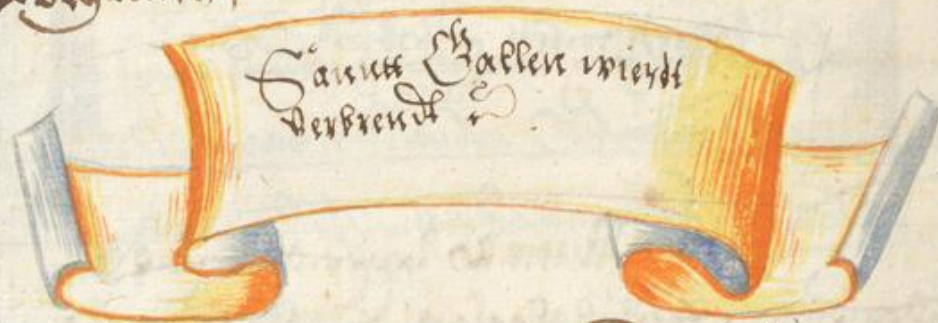 Sanntt Gallen wierdt
verbrendt